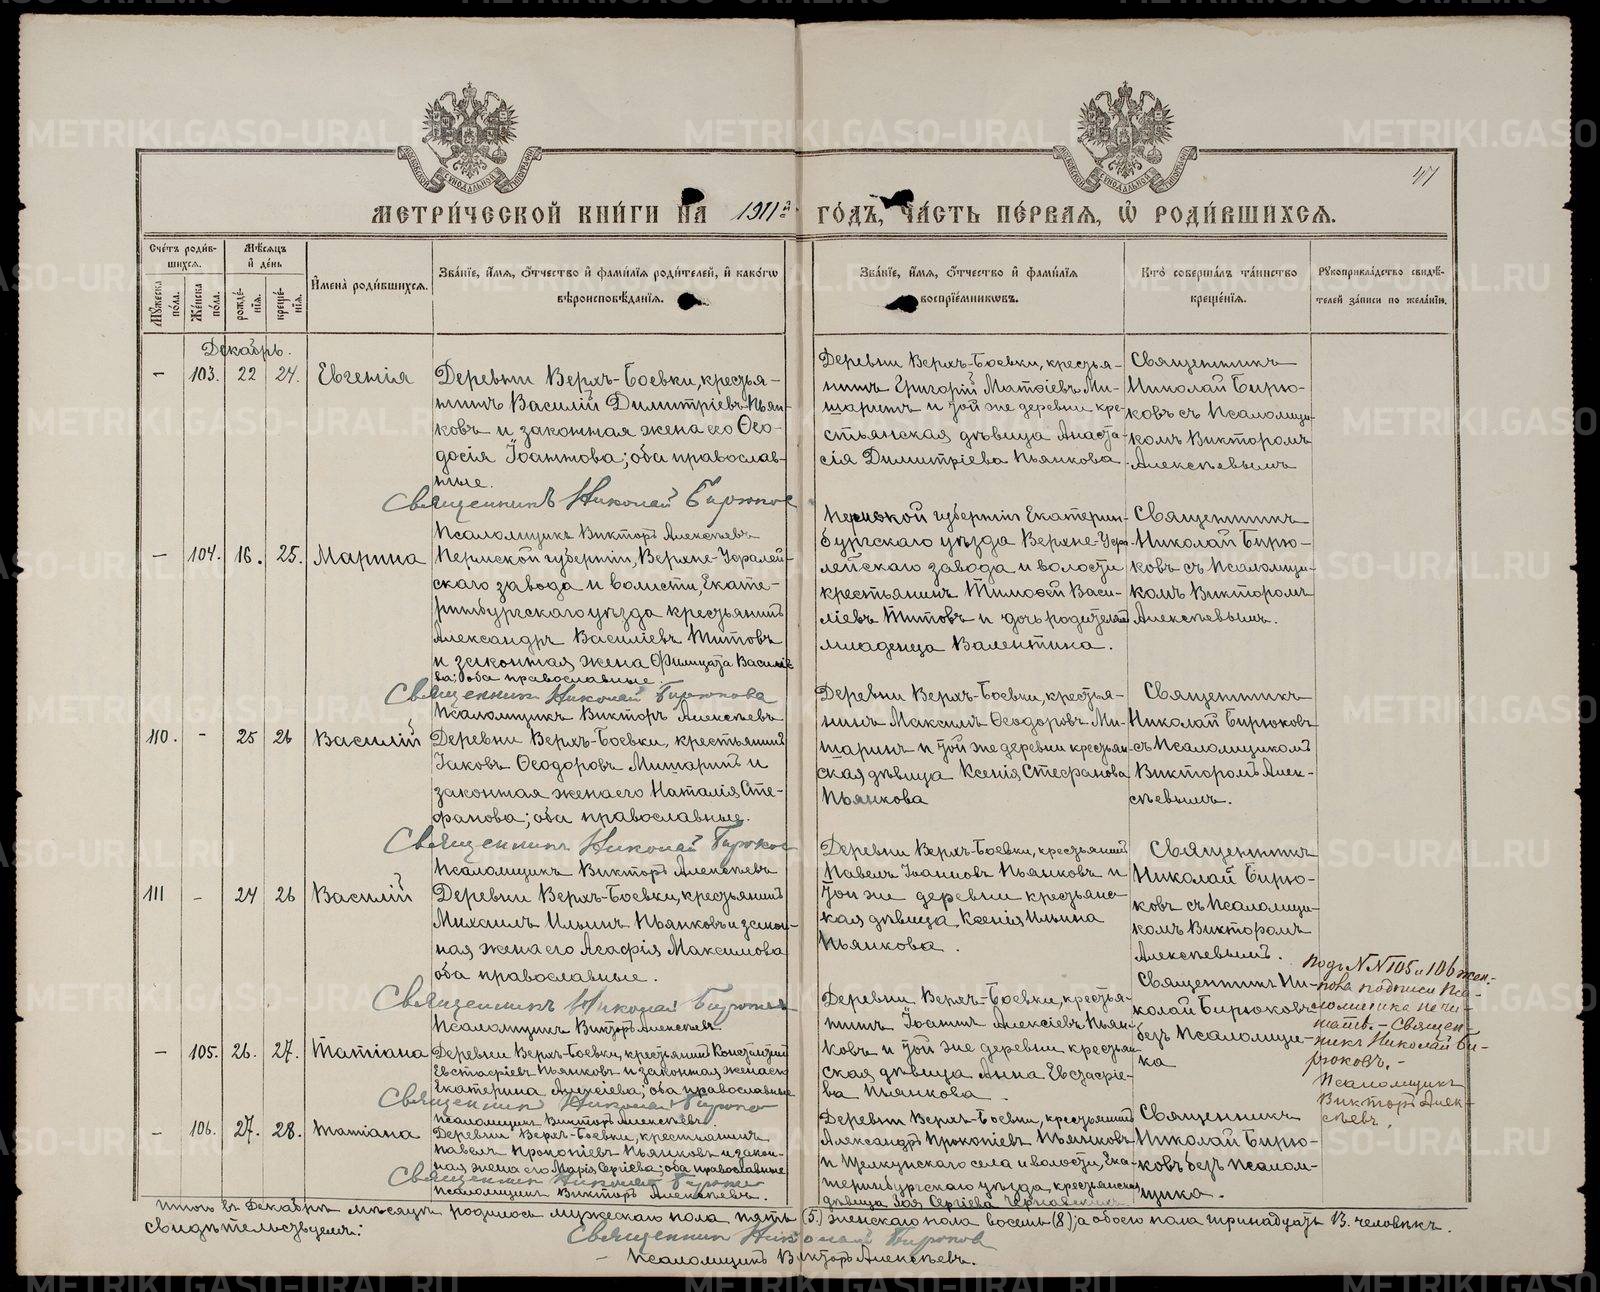 METRIKI.GASO-URAL.RU
47
МЕТРИ́ЧЕСКОЙ КНИ́ГИ НА 1911й ГО́ДЪ, ЧА́СТЬ ПЕ́РВАЯ, Ѡ РОДИ́ВШИХСЯ.
Сче́тъ роди́в-
шихся.
Му́жеска по́ла.
Же́нска по́ла.
Мѣ́сяцъ
и҆ де́нь
рожде́-
нїя.
креще́-
нїя.
И҆мена̀ роди́вшихся.
Зва́нїе, и҆́мя, ѻ҆́тчество и҆ фами́лїя роди́телей, и҆ како́гѡ
вѣроисповѣ́данїя.
Зва́нїе, и҆́мя, ѻ҆́тчество и҆ фами́лїя
воспрїе́мниковъ.
Кто̀ соверша́лъ та́инство
креще́нїя.
Рꙋкоприкла́дство свидѣ́-
телей за́писи по жела́нїю.
Декабрь.
– 103. 22 24. Евгенія
Деревни Верхъ-Боевки, крестья-
нинъ Василій Димитріевъ Пьян-
ковъ и законная жена его Ѳео-
досія Іоаннова; оба православ-
ные.
Священникъ Николай Бирюков
Псаломщикъ Викторъ Алексѣевъ
Деревни Верхъ-Боевки, крестья-
нинъ Григорій Матѳіевъ Ми-
шаринъ и той же деревни кре-
стьянская дѣвица Анаста-
сія Димитріева Пьянкова
Священникъ
Николай Бирю-
ковъ съ Псаломщи-
комъ Викторомъ
Алексѣевымъ
– 104. 16. 25. Марина
Пермской губерніи, Верхне-Уфалей-
скаго завода и волости, Екате-
ринбургскаго уѣзда крестьянинъ
Александръ Василіевъ Титовъ
и законная жена Филицата Василіе-
ва; оба православные.
Священник Николай Бирюкова
Псаломщикъ Викторъ Алексѣевъ
Пермской губерніи Екатерин-
бургскаго уѣзда Верхне-Уфа-
лейскаго завода и волости
крестьянинъ Тимоѳей Васи-
ліевъ Титовъ и дочь родителей
младенца Валентина.
Священникъ
Николай Бирю-
ковъ съ Псаломщи-
комъ Викторомъ
Алексѣевымъ.
110. – 25 26 Василій
Деревни Верхъ-Боевки, крестьянинъ
Іаковъ Ѳеодоровъ Мишаринъ и
законная жена его Наталія Сте-
фанова; оба православные.
Священникъ Николай Бирюков
Псаломщикъ Викторъ Алексѣевъ
Деревни Верхъ-Боевки, крестья-
нинъ Максимъ Ѳеодоровъ Ми-
шаринъ и той же деревни крестьян-
ская дѣвица Ксенія Стефанова
Пьянкова
Священникъ
Николай Бирюковъ
съ Псаломщикомъ
Викторомъ Алек-
сѣевымъ.
111 – 24 26 Василій
Деревни Верхъ-Боевки, крестьянинъ
Михаилъ Ильинъ Пьянковъ и закон-
ная жена его Агафія Максимова
оба православные.
Священникъ Николай Бирюков
Псаломщикъ Викторъ Алексѣевъ.
Деревни Верхъ-Боевки, крестьянинъ
Павелъ Іоанновъ Пьянковъ и
той же деревни крестьянс-
кая дѣвица Ксенія Ильина
Пьянкова.
Священникъ
Николай Бирю-
ковъ съ Псаломщи-
комъ Викторомъ
Алексѣевымъ.
– 105. 26. 27. Татіана
Деревни Верхъ-Боевки, крестьянинъ Константинъ
Евстафіевъ Пьянковъ и законная жена его
Екатерина Алексіева; оба православные
Священник Николай Бирюков
Псаломщикъ Викторъ Алексѣевъ.
Деревни Верхъ-Боевки, крестья-
нинъ Іоаннъ Алексіевъ Пьян-
ковъ и той же деревни крестьян-
ская дѣвица Анна Евстафіе-
ва Пьянкова.
Священникъ Ни-
колай Бирюковъ
безъ Псаломщи-
ка
Подъ №№ 105 и 106 жен.
пола подписи Пса-
ломщика не чи-
тать. – Священ-
никъ Николай Би-
рюковъ. –
Псаломщикъ
Викторъ Алек-
сѣевъ.
– 106. 27. 28. Татіана
Деревни Верхъ-Боевки, крестьянинъ
Павелъ Прокопіевъ Пьянковъ и закон-
ная жена его Марія Сергіева; оба православные
Священник Николай Бирюков
Псаломщикъ Викторъ Алексѣевъ.
Деревни Верхъ-Боевки, крестьянинъ
Александръ Прокопіевъ Пьянковъ
и Щелкунскаго села и волости, Ека-
теринбургскаго уѣзда, крестьянская
дѣвица Зоя Сергіева
Священникъ
Николай Бирю-
ковъ безъ Псалом-
щика.
Итого въ Декабрѣ мѣсяцѣ родилось мужескаго пола пять (5) женскаго пола восемь (8); а обоего пола тринадцать 13. человѣкъ.
Свидѣтельствуемъ:
Священник Николай Бирюков
– Псаломщикъ Викторъ Алексѣевъ.